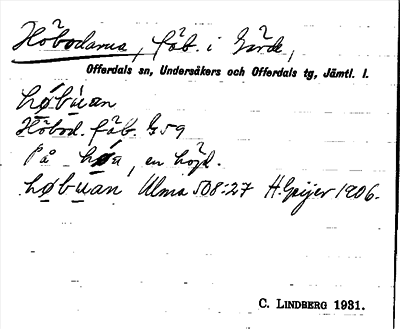 Höbodarna, fäb. i Gärde,
Offerdals sn, Undersåkers och Offerdals tg, Jämtl. l.
høbùan
Höbod. fäb. G59
På høa, en höjd.
høbùan Ulma 508:27 H. Geijer 1906.
C. LINDBERG 1931.